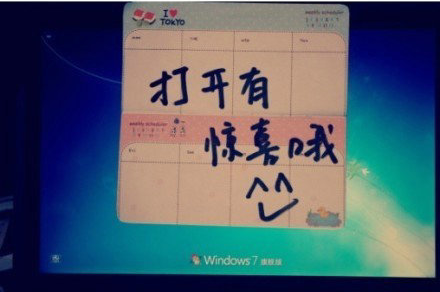 I ❤ TOKYO
weekly scheduler
打开有
weekly scheduler
惊喜哦
^^
Windows 7 旗舰版